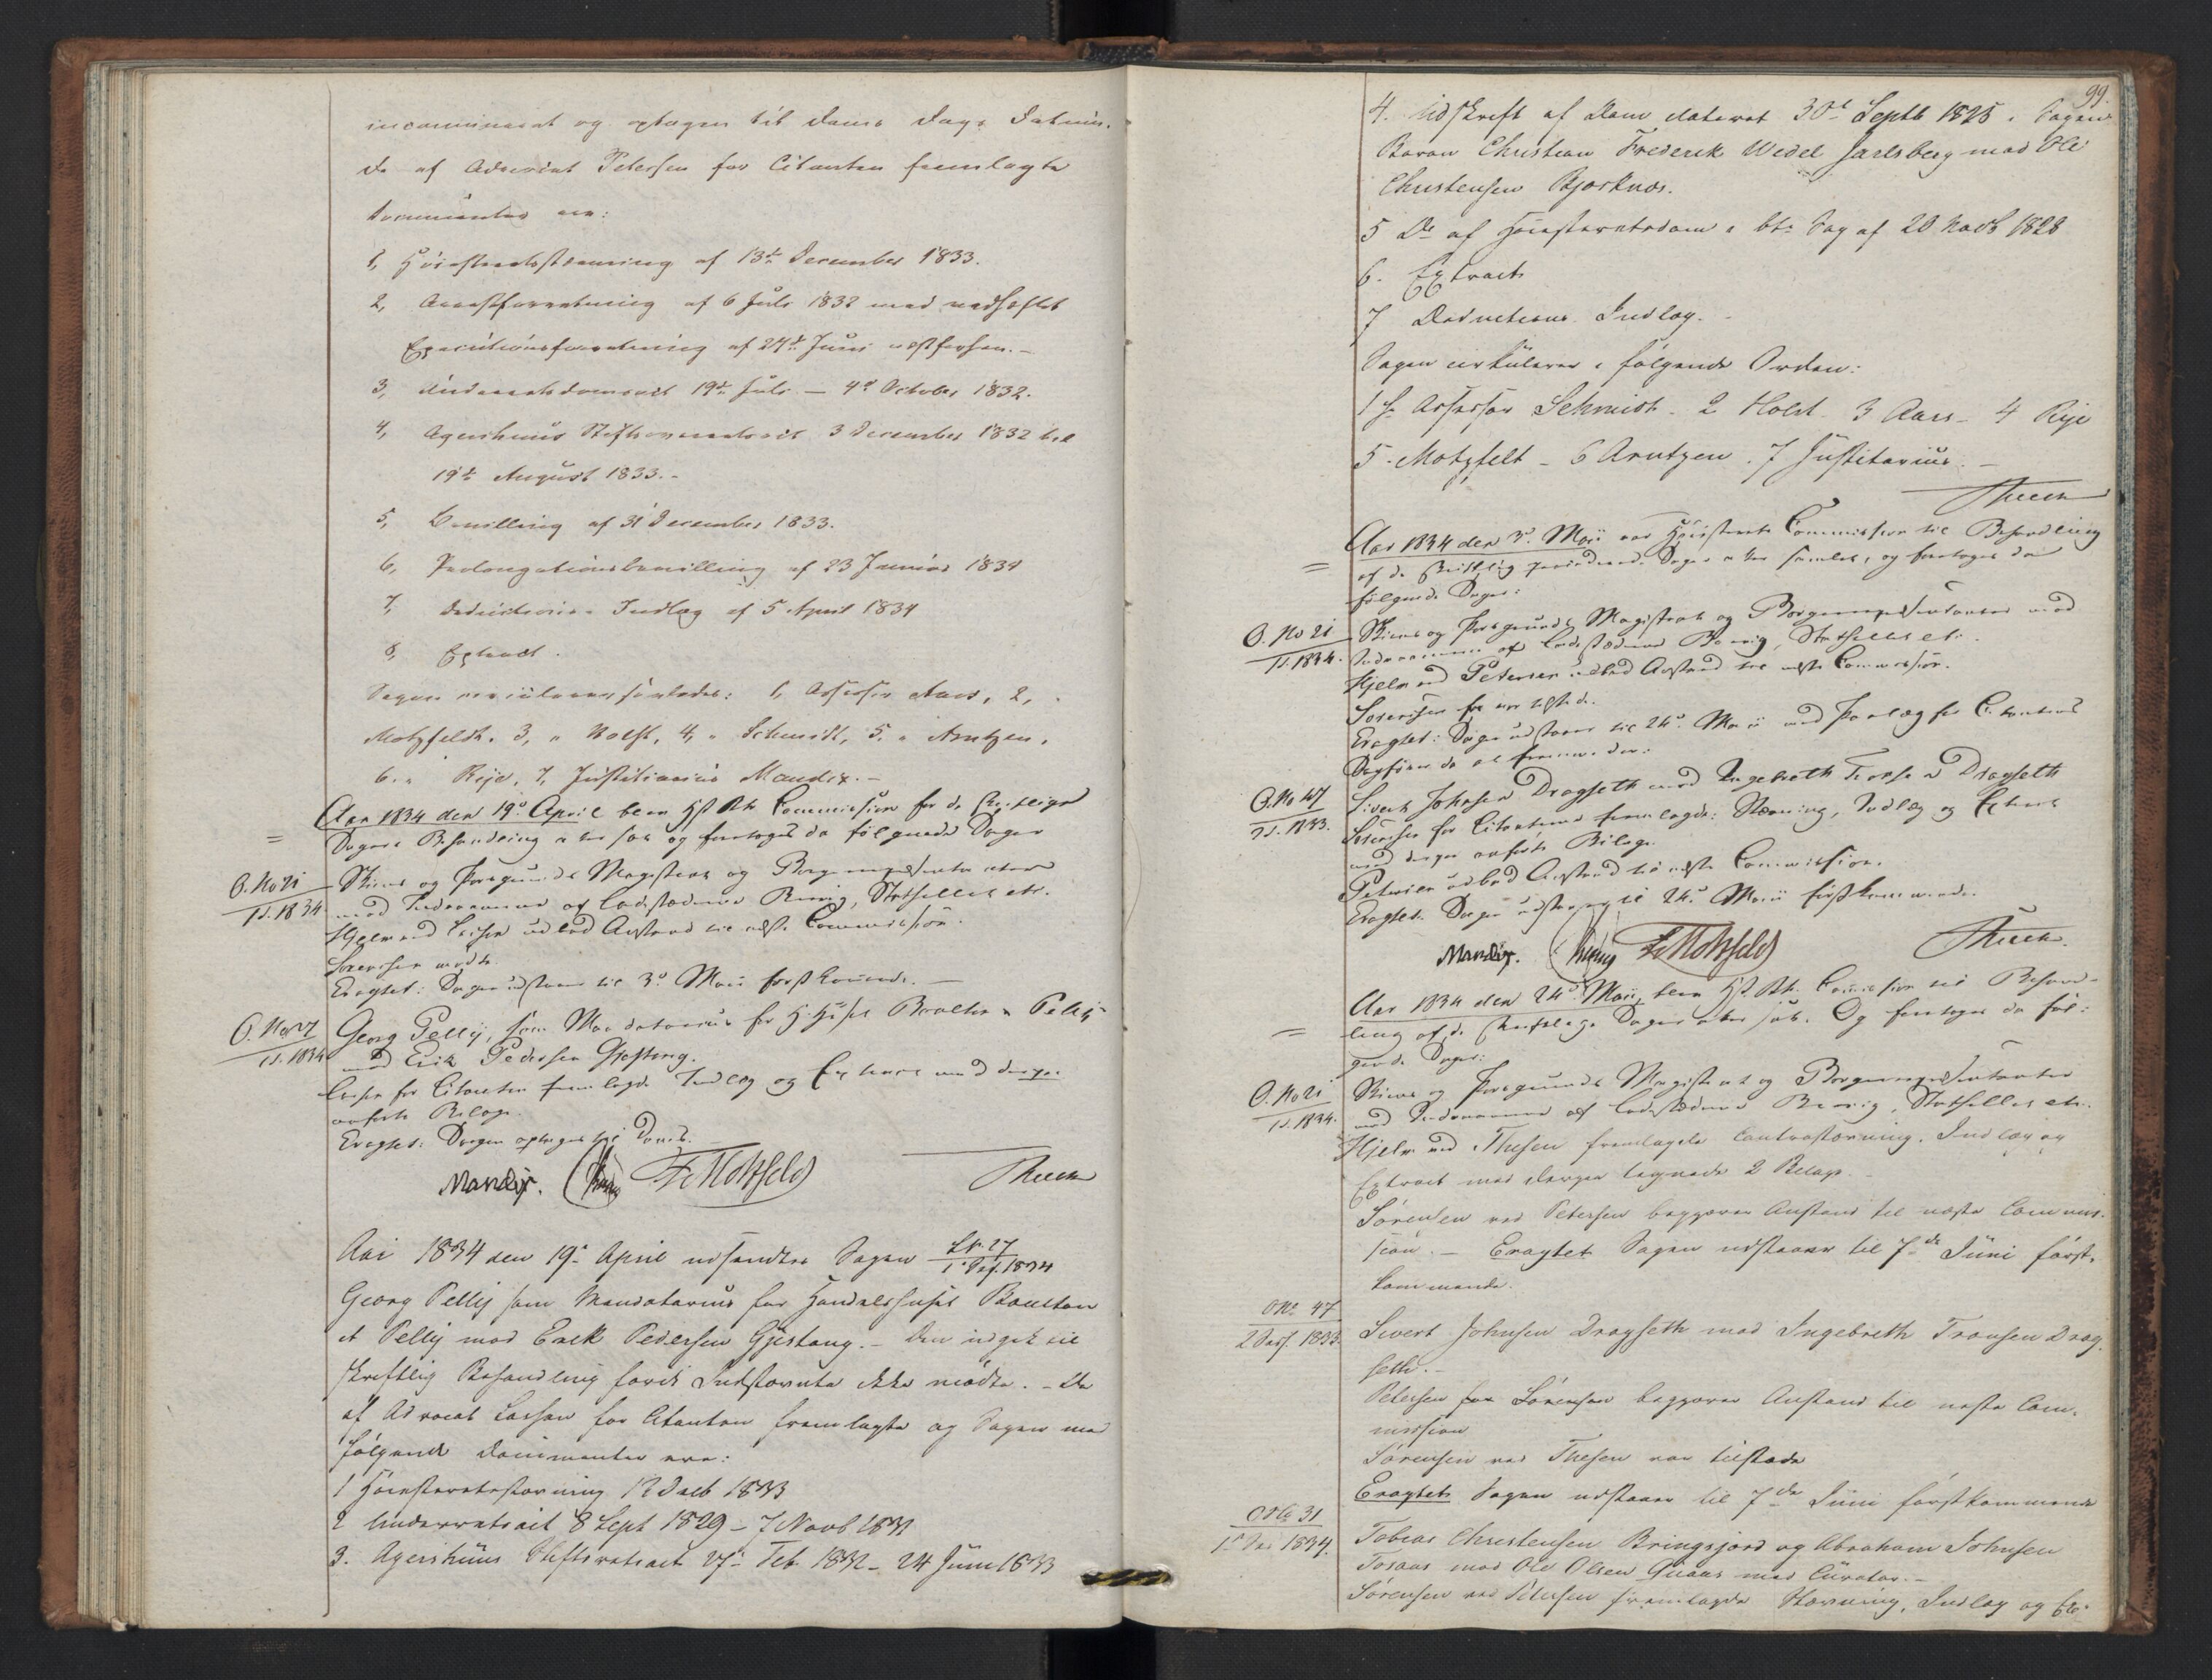 incamineret og optagen til Doms. Dags Datum.
De af Advocat Petersen for Citanten fremlagte
Documenter ere:
1, Höiesteretsstævning af 13de December 1833.
2, Arrestforretning af 6 Juli 1832 med vedheftet
Executionsforretning af 24de Juni næstforhen.-
3, Underretsdomsact 19de Juli - 4de October 1832.
4, Agershuus Stiftsoverretsact 3 December 1832 til
19de August 1833.-
5, Bevilling af 31 December 1833.
6, Prolongationsbevilling af 23 Januar 1834
7, Deductions-Indlæg af 5 April 1834
8, Extract.
Sagen circulerer saaledes: 1, Assessor Aars, 2,
Motzfeldt. 3, " Holst, 4, " Schmidt, 5. " Arntzen.
6. " Rije, 7, Justitiarius Mandix.-
Aar 1834 den 19de April blev Hst Rts Commission for de skriftlige
Sagers Behandling atter sat og foretoges da følgende Sager
O. No 21
1 S. 1834
Skiens og Porsgrunds Magistrat og Borgerrepræsentanter
mod Indvaanerne af Ladestæderne Brevig, Stathelle etc.
Hjelm ved Lasson udbad Anstand til næste Commission.
Sørenssen mødte.
Eragtet: Sagen udstaaer til 3de Maii førstkommende.-
O. No 27
1 S. 1834
Georg Pelly, som Mandatarius for H. Huset Boulton & Pelly
mod Erik Pedersen Gjestang.
Lasson for Citanten fremlagde Indlæg og Extract med deri
anførte Bilage.
Eragtet: Sagen optages til Doms.
Mandix. F. Motzfeldt
Aar 1834 den 19de April udsendtes Sagen L No 27 / 1ste Ses. 1834
Georg Pelly som Mandatarius for Handelshuset Boulton
et Pelly mod Erik Pedersen Gjestang.- Den indgik til
skriftlig Behandling fordi Indstævnte ikke mødte.- De
af Advocat Lasson for Citanten fremlagte og Sagen med
følgende Documenter ere:
1 Höiesteretsstævning 12 Decb 1833
2 Underretsact 8 Sept 1829 - 7 Novb 1831
3. Agershuus Stiftsretsact 27de Feb. 1832 - 24 Juni 1833
99.
4. Udskrift af Dom dateret 30te Septb 1825 i Sagen
Baron Christian Frederik Wedel Jarlsberg mod Ole
Christensen Bjørknæs.
5 Do af Höiesteretsdom i Sag af 20 1828
6. Extract
7 Deductions Indlæg.-
Sagen cirkulerer i følgende Orden:
1 Hr Assessor Schmidt - 2 Holst - 3 Aars - 4 Rije
5. Motzfelt - 6 Arntzen. 7 Justitarius.-
Aar 1834 den 3de Maii var Höiesterets Commission til Behandling
af de skriftlig procederede Sager atter samlet, og foretoges da
følgende Sager:
O. No 21
1 S. 1834.
Skiens og Porsgrunds Magistrat og Borgerrepræsentanter mod
Indvaanerne af Ladestæderne Brevig, Stathelle etc.
Hjelm ved Petersen udbad Anstand til næste Commission.
Sørenssen var tilstede.
Eragtet: Sagen udstaaer til 24de Maii med Paalæg for Citantens
Sagfører da at fremme den.
O. No 47
2 S. 1833.
Sivert Johnsen Dragseth mod Ingebreth Tronsen Dragseth
Sørenssen for Citanten fremlagde: Stævning, Indlæg og Extract
med deri anførte Bilage.
Petersen udbad Anstand til næste Commission.
Eragtet: Sagen udstaaer til 24de Maii førstkommende.
Mandix. F. Motzfeldt
Aar 1834 den 24de Maii blev Hst. Rts. Commission til Behand-
ling af de skriftlige Sager atter sat. Og foretoges da føl-
gende Sager:
O. No 21
1 S. 1834.
Skiens og Porsgrunds Magistrat og Borgerrepræsentanter
mod Indvaanerne af Ladestæderne Brevig, Stathelle etc.
Hjelm ved Thesen fremlagde Contrastævning, Indlæg og
Extract med derpaa tegnede 2 Bilage.
Sørensen ved Petersen begjærer Anstand til næste Commis-
sion.- Eragtet Sagen udstaaer til 7de Juni først-
kommende.
O No 47
2 Sess. 1833
Sivert Johnsen Dragseth mod Ingebreth Tronsen Drag-
seth.-
Petersen for Sörensen begjærer Anstand til næste Com-
mission
Sørensen ved Thesen var tilstede
Eragtet Sagen udstaaer til 7de Juni førstkommende
O No 31
1ste Ses 1834.
Tobias Christensen Bringsjord og Abraham Johnsen
Fosaas mod Ole Olsen Quaas med Curator.-
Sörensen ved Petersen fremlagde Stævning, Indlæg og Ex-